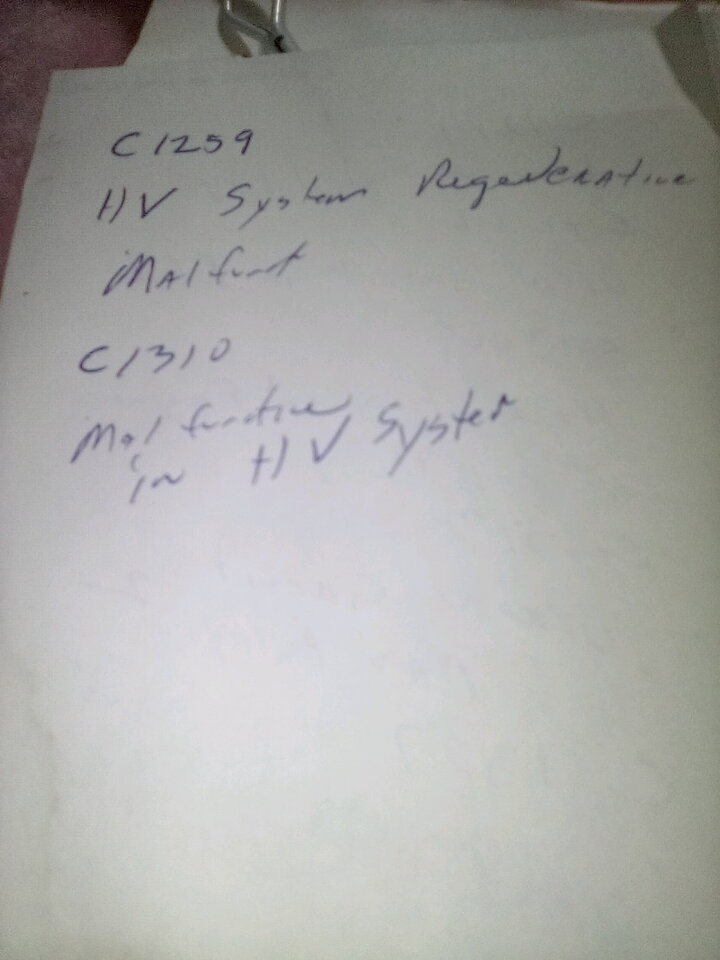 C1259
HV System Regenerative
Malfunct
C1310
Malfunction
in HV System